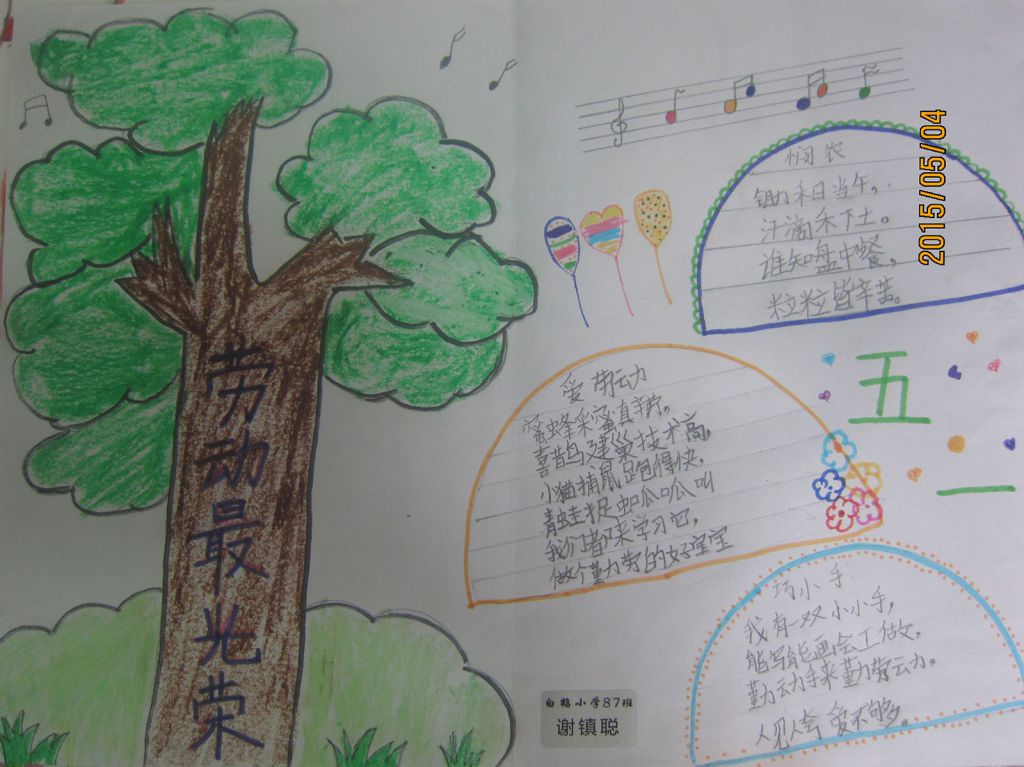 劳动最光荣
悯农
锄禾日当午，
汗滴禾下土。
谁知盘中餐，
粒粒皆辛苦。
爱劳动
蜜蜂采蜜真辛劳，
喜鹊建巢技术高，
小猫捕鼠跑得快，
青蛙捉虫呱呱叫
我们都来学习它，
做个勤劳的好宝宝
五一
巧小手
我有一双小小手，
能写能画会工做，
勤动手来勤劳动，
人见人夸爱不够。
白鹅小学87班
谢镇聪
2015/05/04